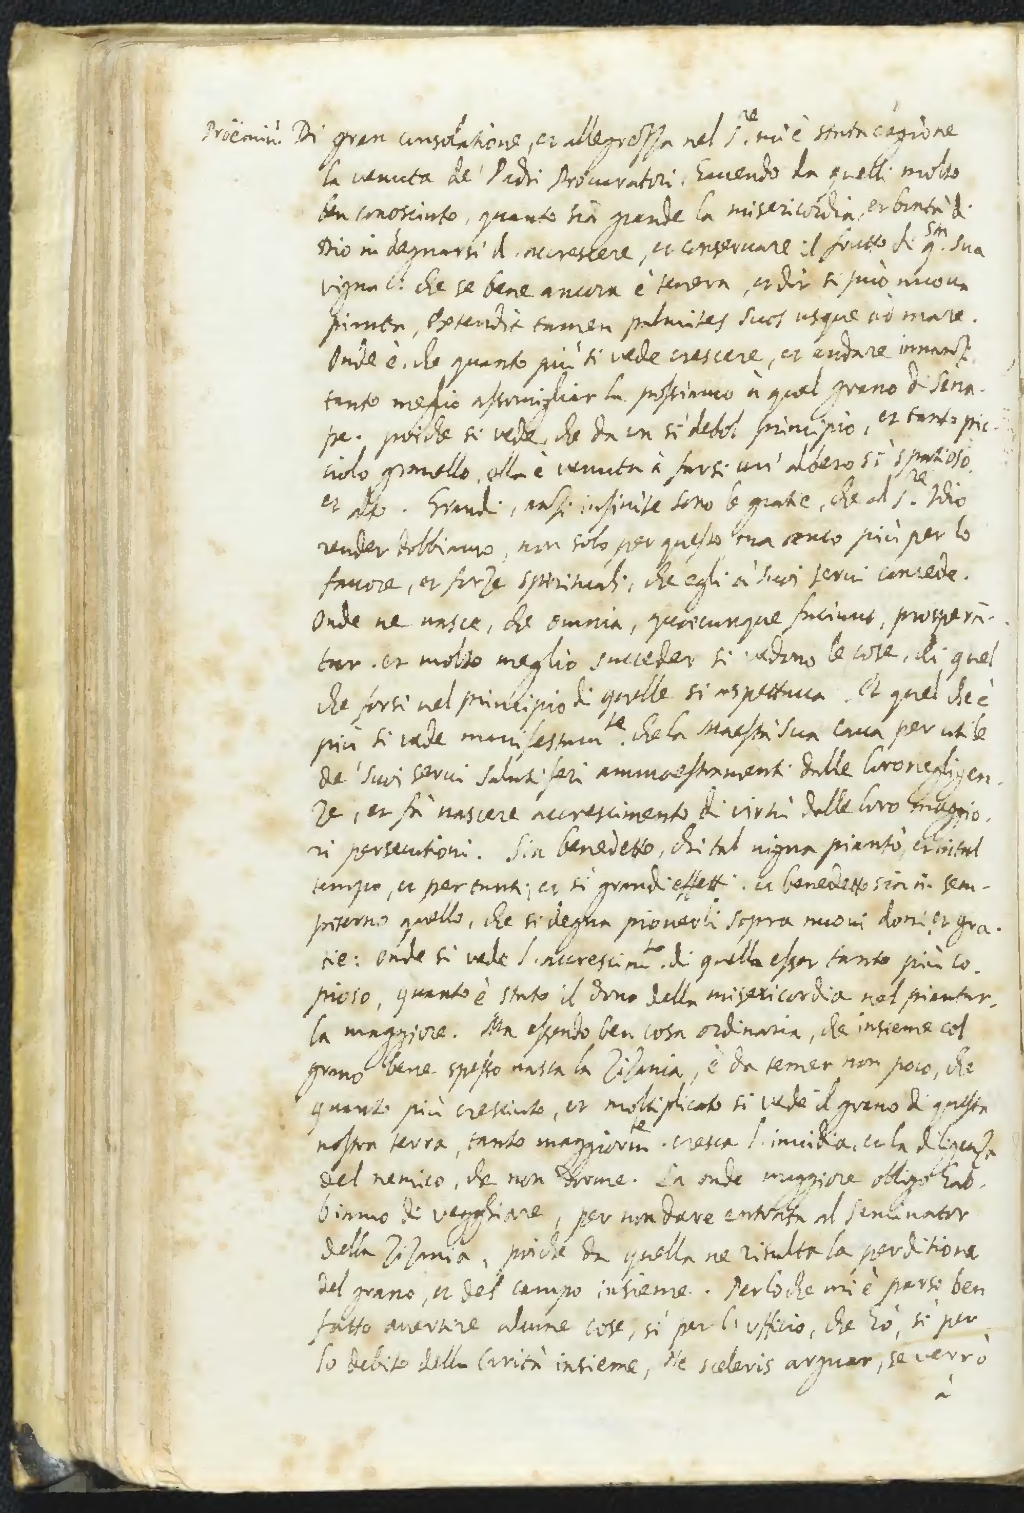 Proemiu. Di gran consolatione, et allegrezza nel S.re mi è stata cagione
la venuta de' Padri Procuratori, havendo da quelli molto
ben conosciuto, quanto sia grande la misericordia, et bontà di
Dio in degnarsi d'accrescere, et conservare il frutto di q.sta sua
vigna che se bene ancora è tenera, et dir si può nuova
pianta, Extendit tamen palmites suos usque ad mare.
Onde è, che quanto più si vede crescere, et andare innanzi
tanto meglio assomigliar la possiamo à quel grano di Sena-
pe. poiche si vede, che da un sì debol principio, et tanto pic-
ciolo granello, ella è venuta à farsi un' albero sì spatioso,
et alto. Grandi, anzi infinite sono le gratie, che al S.re Idio
render dobbiamo, non solo per questo ma anco più per lo
favore, et forze spirituali, che egli à suoi servi concede.
Onde ne nasce, che omnia, quaecunque faciunt, prosperā-
tur. et molto meglio succeder si vedono le cose, di quel
che forsi nel principio di quelle si aspettava. Et quel che è
più si vede manifestam.te che la Maestà sua cava per utile
de' suoi servi salutiferi ammaestramenti dalle loro negligen-
ze, et fà nascere accrescimento di virtù dalle loro maggio-
ri persecutioni. Sia benedetto, chi tal vigna piantò, et in tal
tempo, et per tanti, et sì grandi effetti. et benedetto sia in sem-
piterno quello, che si degna piovergli sopra nuovi doni, et gra-
tie: onde si vede l'accrescim.to di quella esser tanto più co-
pioso, quanto è stato il dono della misericordia nel piantar-
la maggiore. Ma essendo ben cosa ordinaria, che insieme col
grano bene spesso nasca la Zizania, è da temer non poco, che
quanto più cresciuto, et moltiplicato si vede il grano di questa
nostra terra, tanto maggiorm.te cresca l'invidia, et la diligenza
del nemico, che non dorme. La onde maggiore obligo hab-
biamo di vegghiare, per non dare entrata al seminator
della Zizania, poiche da quella ne risulta la perditione
del grano, et del campo insieme. Perloche mi è parso ben
fatto avertire alcune cose, sì per l'ufficio, che hò, sì per
lo debito della carità insieme, Ne sceleris arguar, se verrò
à